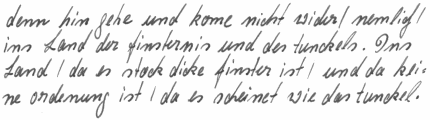 denn hin gehe und kome nicht wider / nemlich /
ins Land der finsternis und des tunckels. Ins
Land / da es stock dicke finster ist / und da kei-
ne ordenung ist / da es scheinet wie das tunckel.